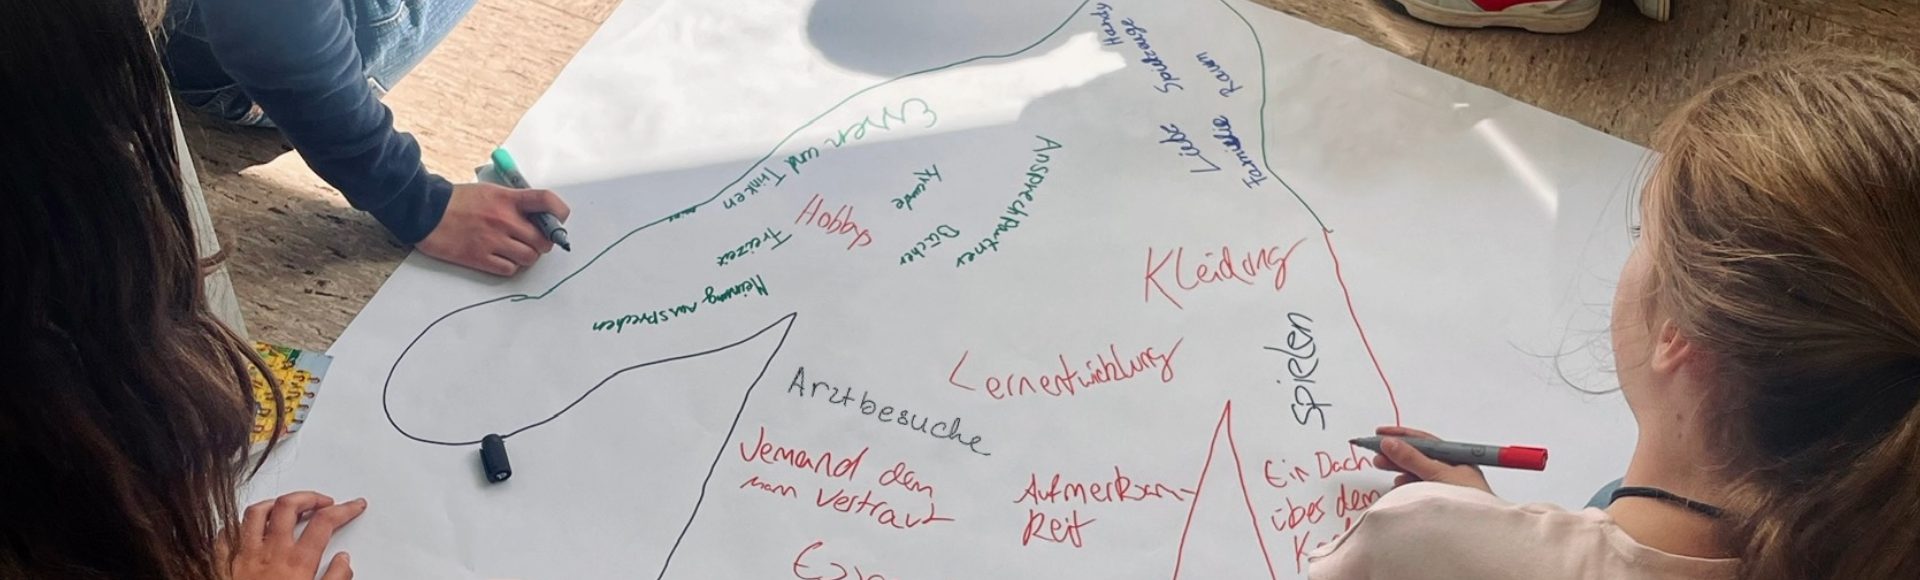 Handy
Spielzeuge
Raum
Liebe
Familie
Essen und Trinken
Hobbys
Freunde
Bücher
Ansprechpartner
Freizeit
Meinung aussprechen
Kleidung
Lernentwicklung
spielen
Arztbesuche
Jemand dem
man vertraut
Aufmerksam-
keit
Ein Dach
über dem